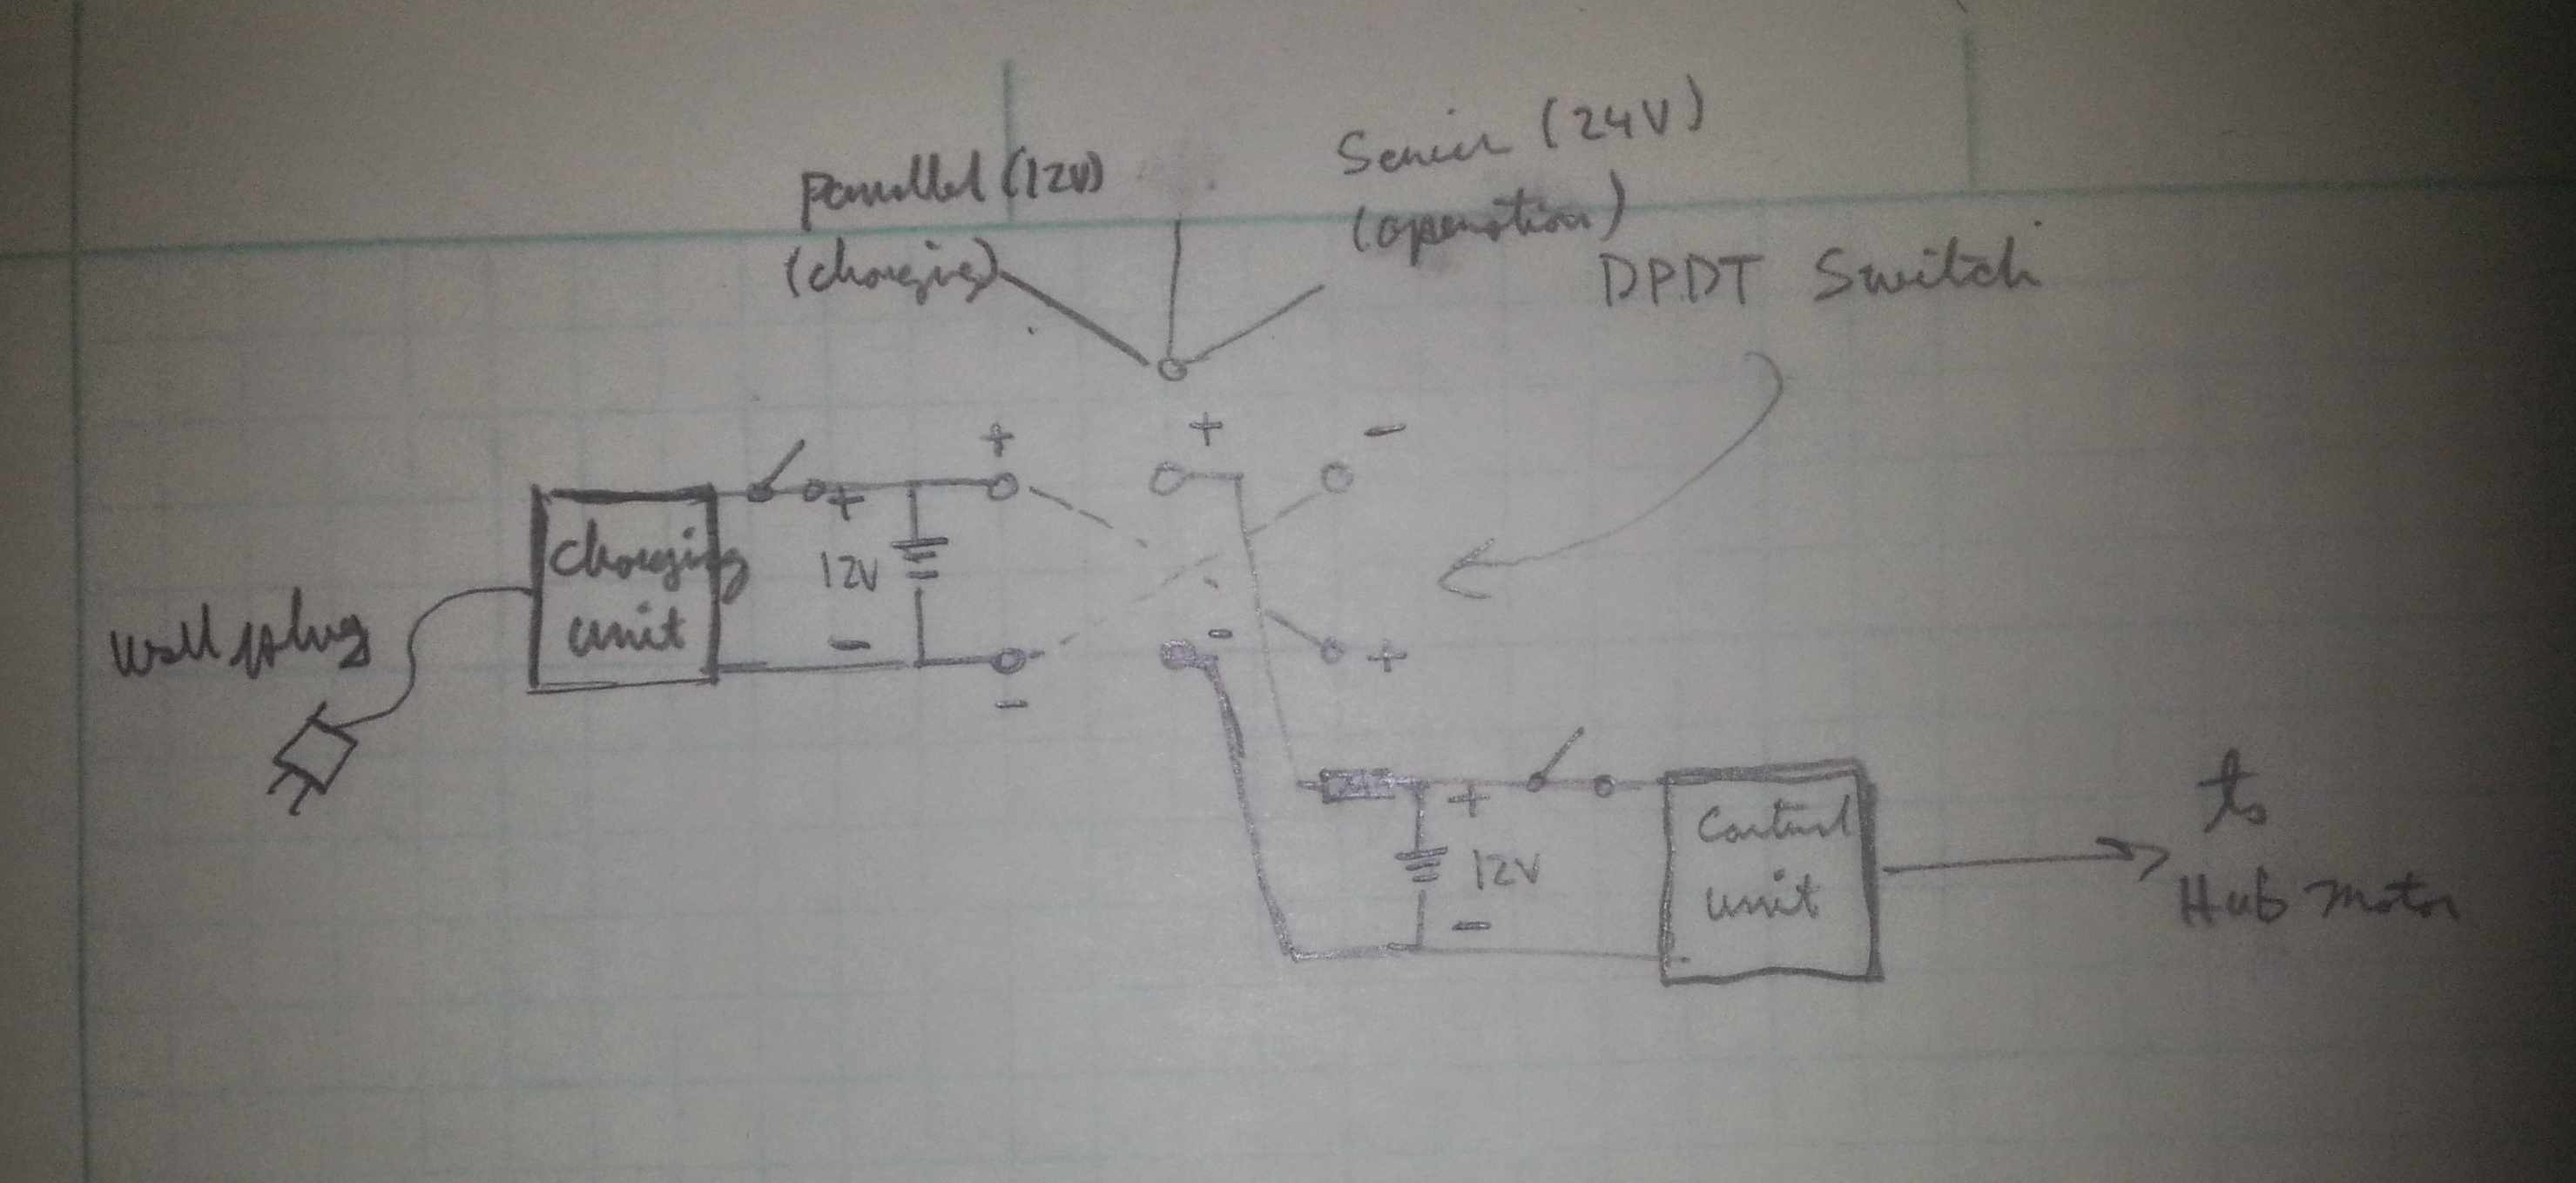 Parallel (12V)
(charging)
Series (24V)
(operation)
DPDT Switch
+
+
-
Charging
unit
+
12V
-
-
-
+
Wall plug
+
12V
-
Control
unit
to
Hub motor